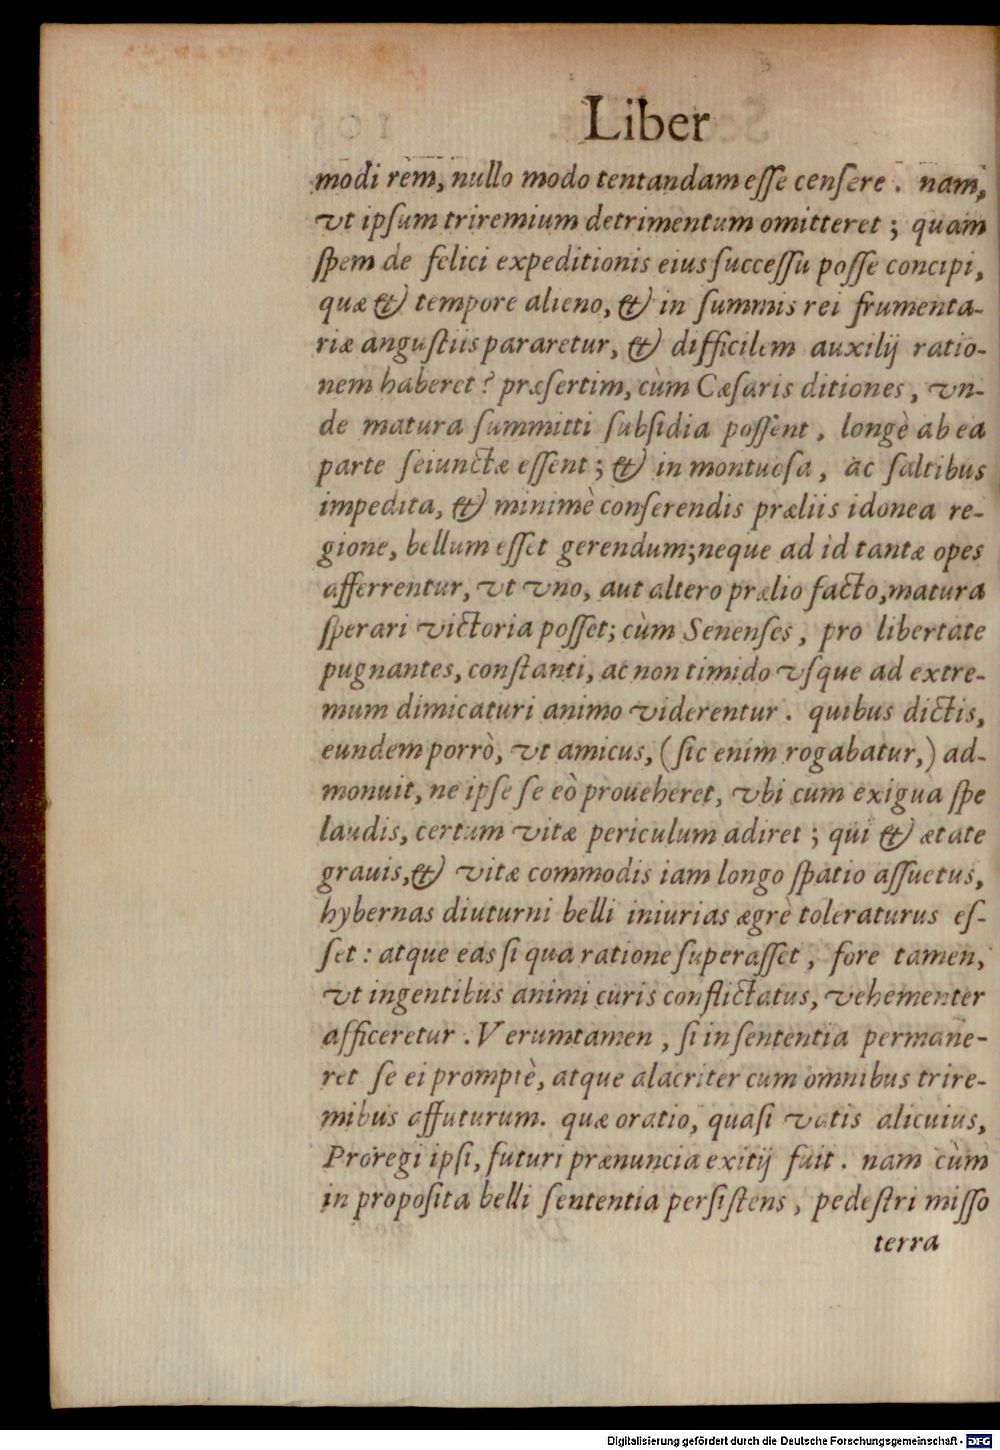 Liber
modi rem, nullo modo tentandam esse censere. nam,
vt ipsum triremium detrimentum omitteret; quam
spem de felici expeditionis eius successu posse concipi,
quæ & tempore alieno, & in summis rei frumenta-
riæ angustiis pararetur, & difficilem auxilij ratio-
nem haberet? præsertim, cùm Cæsaris ditiones, vn-
de matura summitti subsidia possent, longè ab ea
parte seiunctæ essent; & in montuosa, ac saltibus
impedita, & minimè conserendis præliis idonea re-
gione, bellum esset gerendum; neque ad id tantæ opes
afferrentur, vt vno, aut altero prælio facto, matura
sperari victoria posset; cùm Senenses, pro libertate
pugnantes, constanti, ac non timido vsque ad extre-
mum dimicaturi animo viderentur. quibus dictis,
eundem porrò, vt amicus, (sic enim rogabatur,) ad-
monuit, ne ipse se eò proueheret, vbi cum exigua spe
laudis, certum vitæ periculum adiret; qui & ætate
grauis, & vitæ commodis iam longo spatio assuetus,
hybernas diuturni belli iniurias ægrè toleraturus es-
set: atque eas si qua ratione superasset, fore tamen,
vt ingentibus animi curis conflictatus, vehementer
afficeretur. Verumtamen, si in sententia permane-
ret se ei promptè, atque alacriter cum omnibus trire-
mibus affuturum. quæ oratio, quasi vatis alicuius,
Proregi ipsi, futuri prænuncia exitij fuit. nam cùm
in proposita belli sententia persistens, pedestri misso
terra
Digitalisierung gefördert durch die Deutsche Forschungsgemeinschaft - DFG